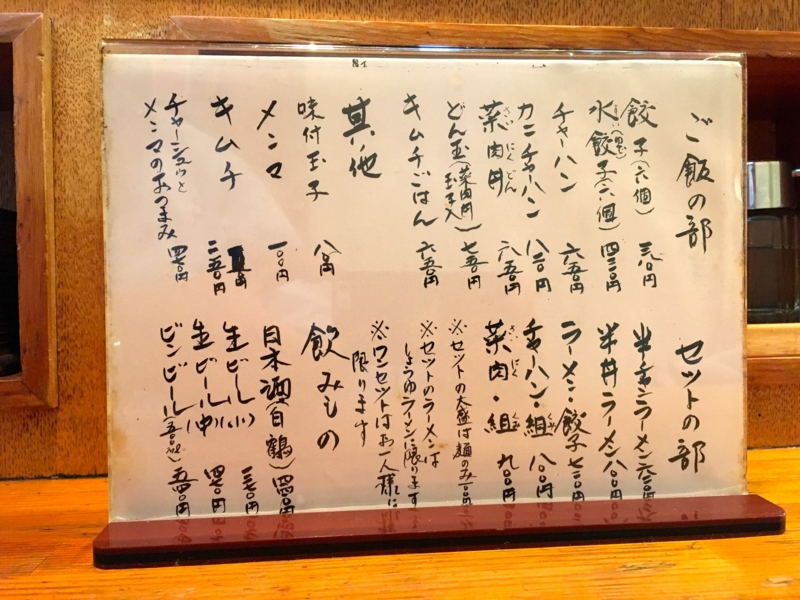 ご飯の部
餃子(六個)
水餃子(六個) 四三〇円
チャーハン 六五〇円
カニチャーハン 八二〇円
菜肉丼 さいにくどん 六五〇円
どん玉(菜肉丼玉子入) 七五〇円
キムチごはん 六五〇円
其の他
味付玉子 八〇円
メンマ 一〇〇円
キムチ 二五〇円
チャーシューと
メンマのおつまみ 四七〇円
セットの部
半チャンラーメン
半丼ラーメン 八〇〇円
ラーメン・餃子 七三〇円
チャーハン・組 八〇〇円
菜肉・組 九〇〇円
※セットの大盛は麺のみ一〇〇円
※セットのラーメンは
しょうゆラーメンに限ります
※ワンセットはお一人様に
限ります
飲みもの
日本酒(白鶴) 四四〇円
生ビール(小)
生ビール(中) 四七〇円
ビンビール 五四〇円